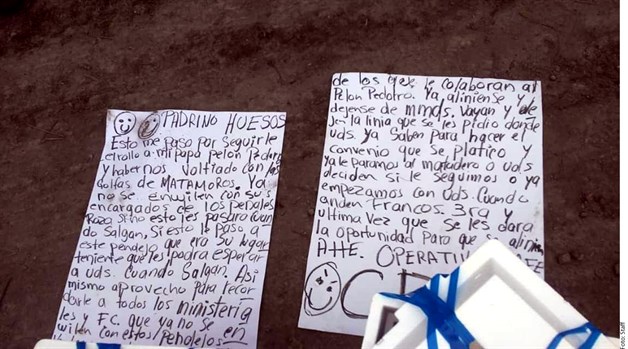 PADRINO HUESOS
Esto me paso por seguirle
el rollo a mi papá pelon
y habernos voltiado con las
Golfas de MATAMOROS, Ya
no se enviilen con sus
encargados de los penales
Roza Sino esto les pasara Cuan
do Salgan, Si esto le paso a
este pendejo que era Su lugar
teniente que les podra esperar
a uds. Cuando Salgan. Asi
mismo aprovecho para recor
darle a todos los ministeria
les y F.C. que ya no se en
wilen con estos Pendejos
de los que le colaboran al
Pelon Ya aliniense y
dejense de mmds. Vayan y de
jen la linia que se les pidio donde
uds. Ya Saben para hacer el
convenio que se platico y
ya le paramos al matadero o uds
deciden si le seguimos o ya
empezamos con Uds. Cuando
anden Francos. 3ra y
ultima Vez que se les dara
la oportunidad Para que se alinien
ATTE. OPERATIV
Foto: Staff